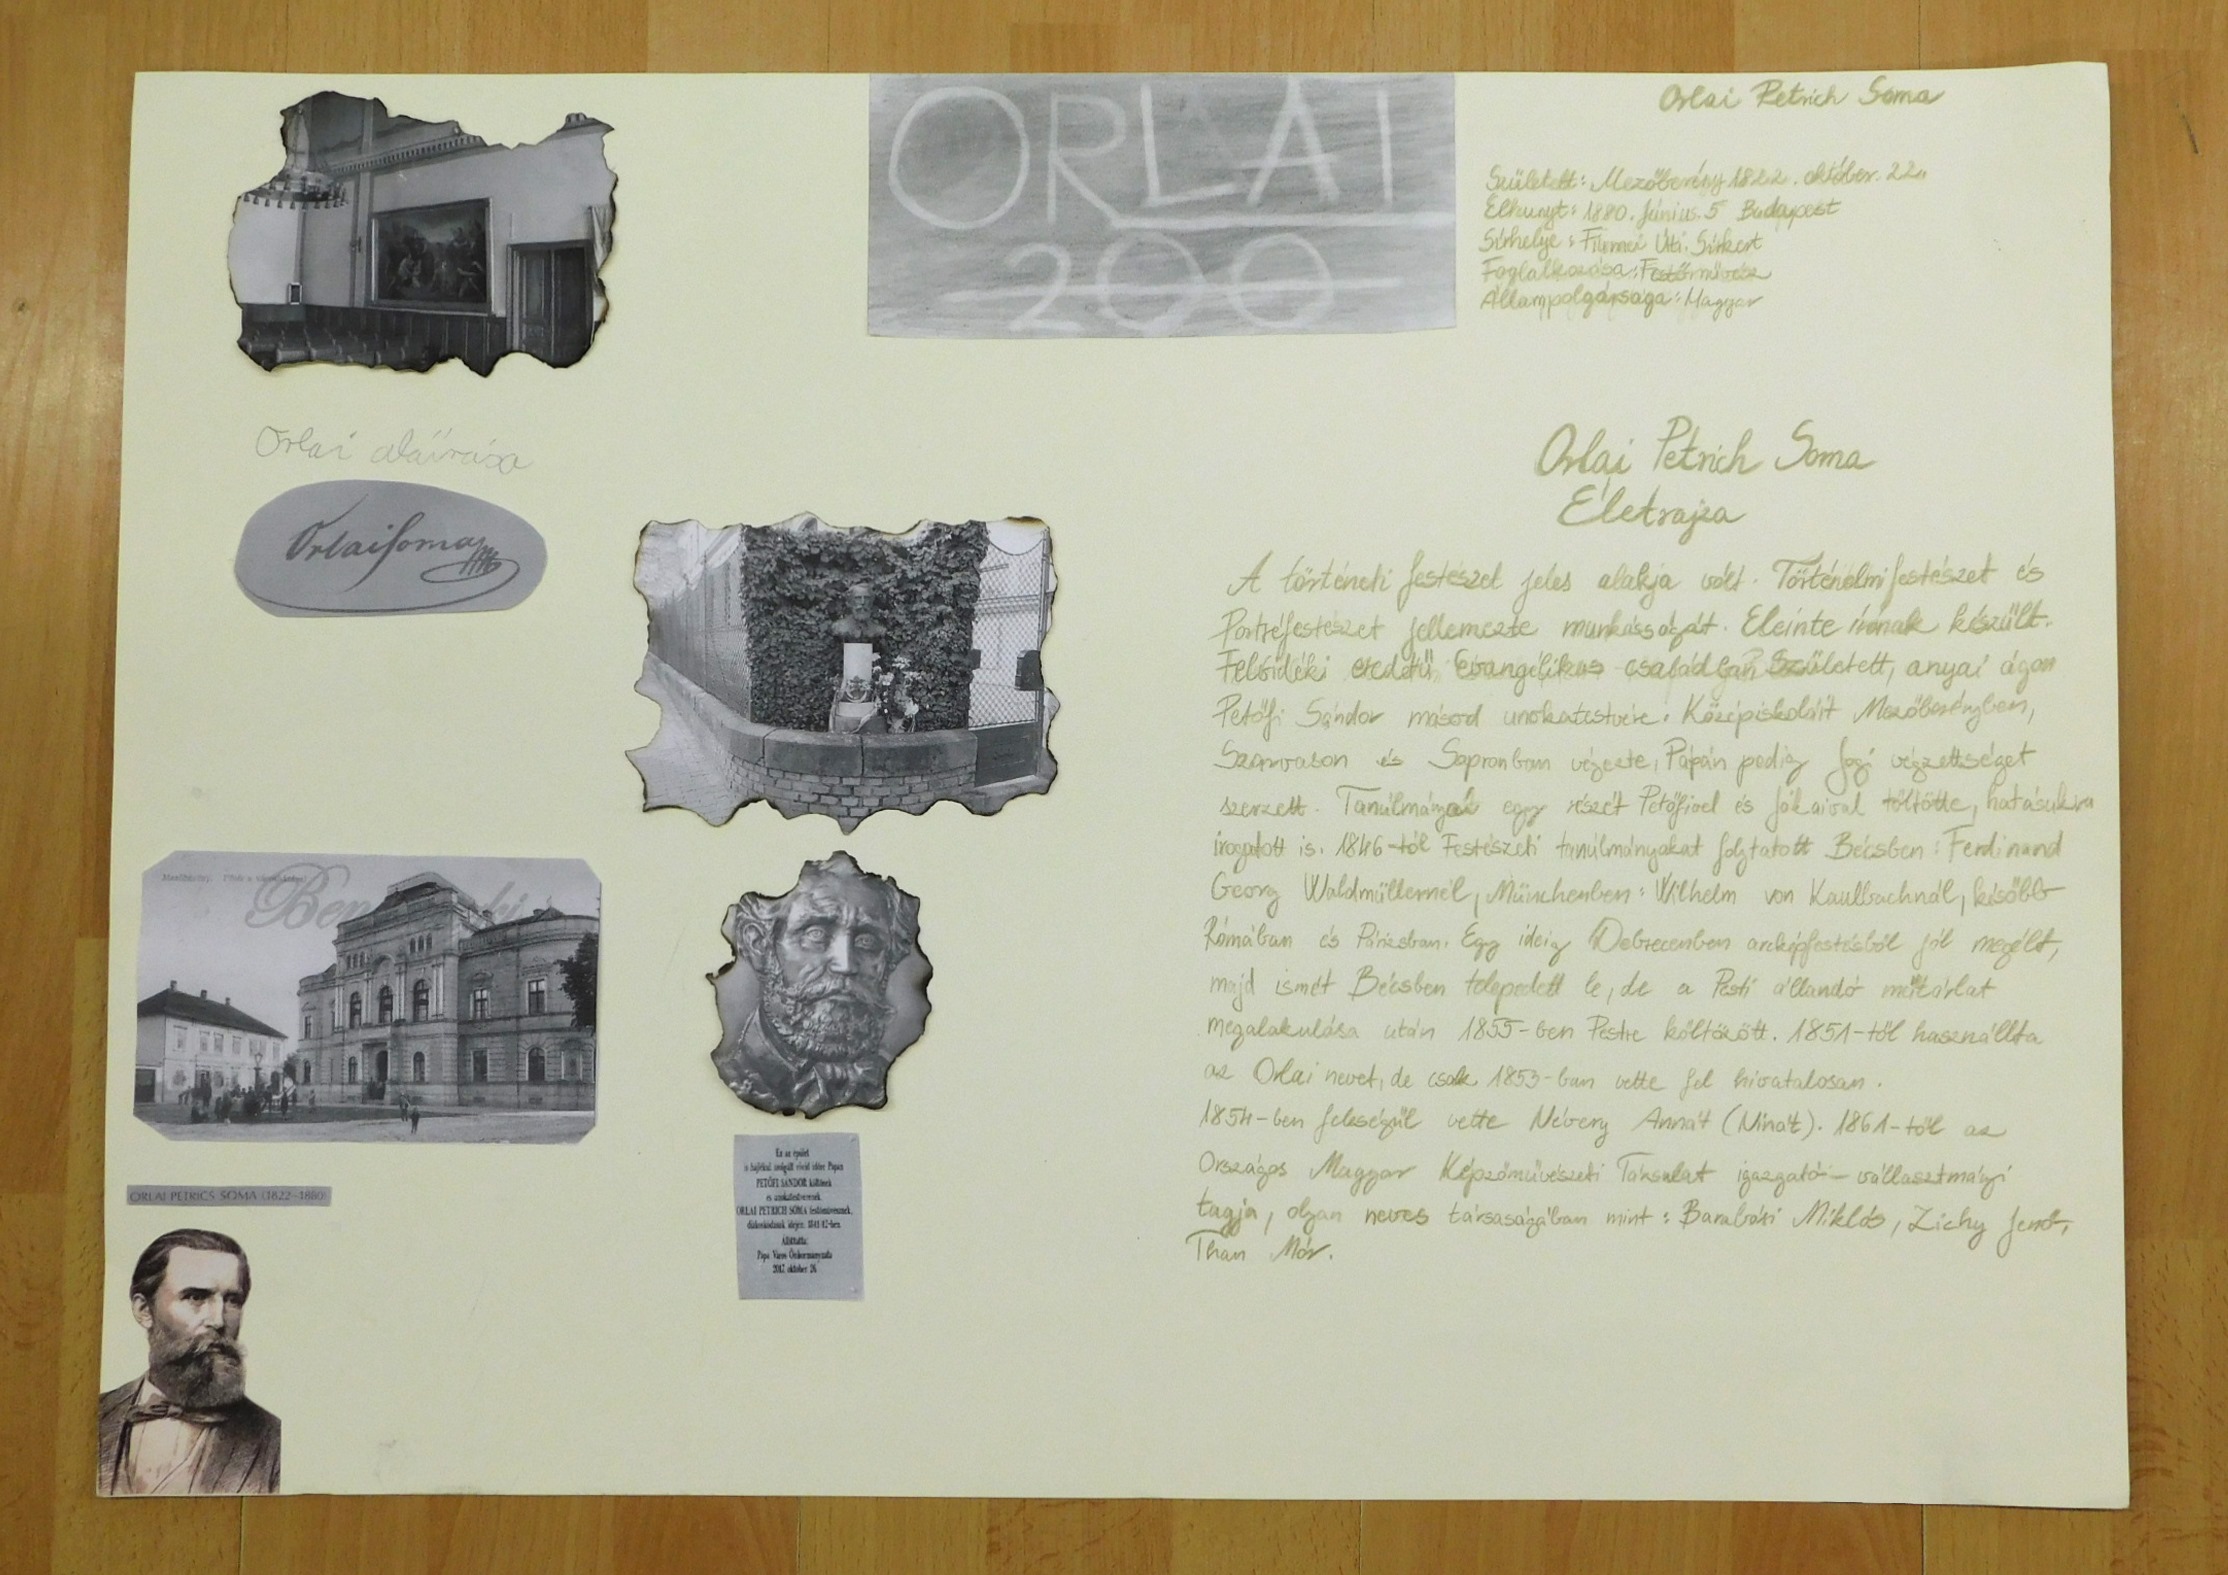 ORLAI
200
Orlai Petrich Soma
Született: Mezőberény 1822. október. 22.
Elhunyt: 1880. Június. 5 Budapest
Sírhelye: Fiumei Úti. Sírkert
Foglalkozása: Festőművész
Állampolgársága: Magyar
Orlai aláírása
Orlai Soma
Orlai Petrich Soma
Életrajza
A történeti festészet jeles alakja volt. Történelmi festészet és
Portréfestészet jellemezte munkásságát. Eleinte írónak készült.
Felvidéki eredetű Evangélikus családban Született, anyai ágon
Petőfi Sándor másod unokatestvére. Középiskoláit Mezőberényben,
Szarvason és Sopronban végezte, Pápán pedig Jogi végzettséget
szerzett. Tanúlmányai egy részét Petőfivel és Jókaival töltötte, hatásukra
írogatott is. 1846-tól Festészeti tanúlmányokat folytatott Bécsben: Ferdinand
Georg Waldmüllernél, Münchenben: Wilhelm von Kaulbachnál, később
Rómában és Párizsban. Egy ideig Debrecenben arcképfestésből jól megélt,
majd ismét Bécsben telepedett le, de a Pesti állandó műtárlat
megalakulása után 1855-ben Pestre költözött. 1851-től használlta
az Orlai nevet, de csak 1853-ban vette fel hivatalosan.
1854-ben feleségül vette Névery Annát (Ninát). 1861-től az
Országos Magyar Képzőművészeti Társulat igazgató-vállasztmányi
tagja, olyan neves társaságában mint: Barabási Miklós, Zichy Jenő,
Than Mór.
Mezőberény.
Ben
ORLAI PETRICS SOMA (1822-1880)
Ez az épület
is hajlékul szolgált rövid időre Pápán
PETŐFI SÁNDOR költőnek
és unokatestvérének
ORLAI PETRICH SOMA festőművésznek,
diákoskodásuk idején. 1841/42-ben
Állíttatta:
Pápa Város Önkormányzata
2017. október 26.